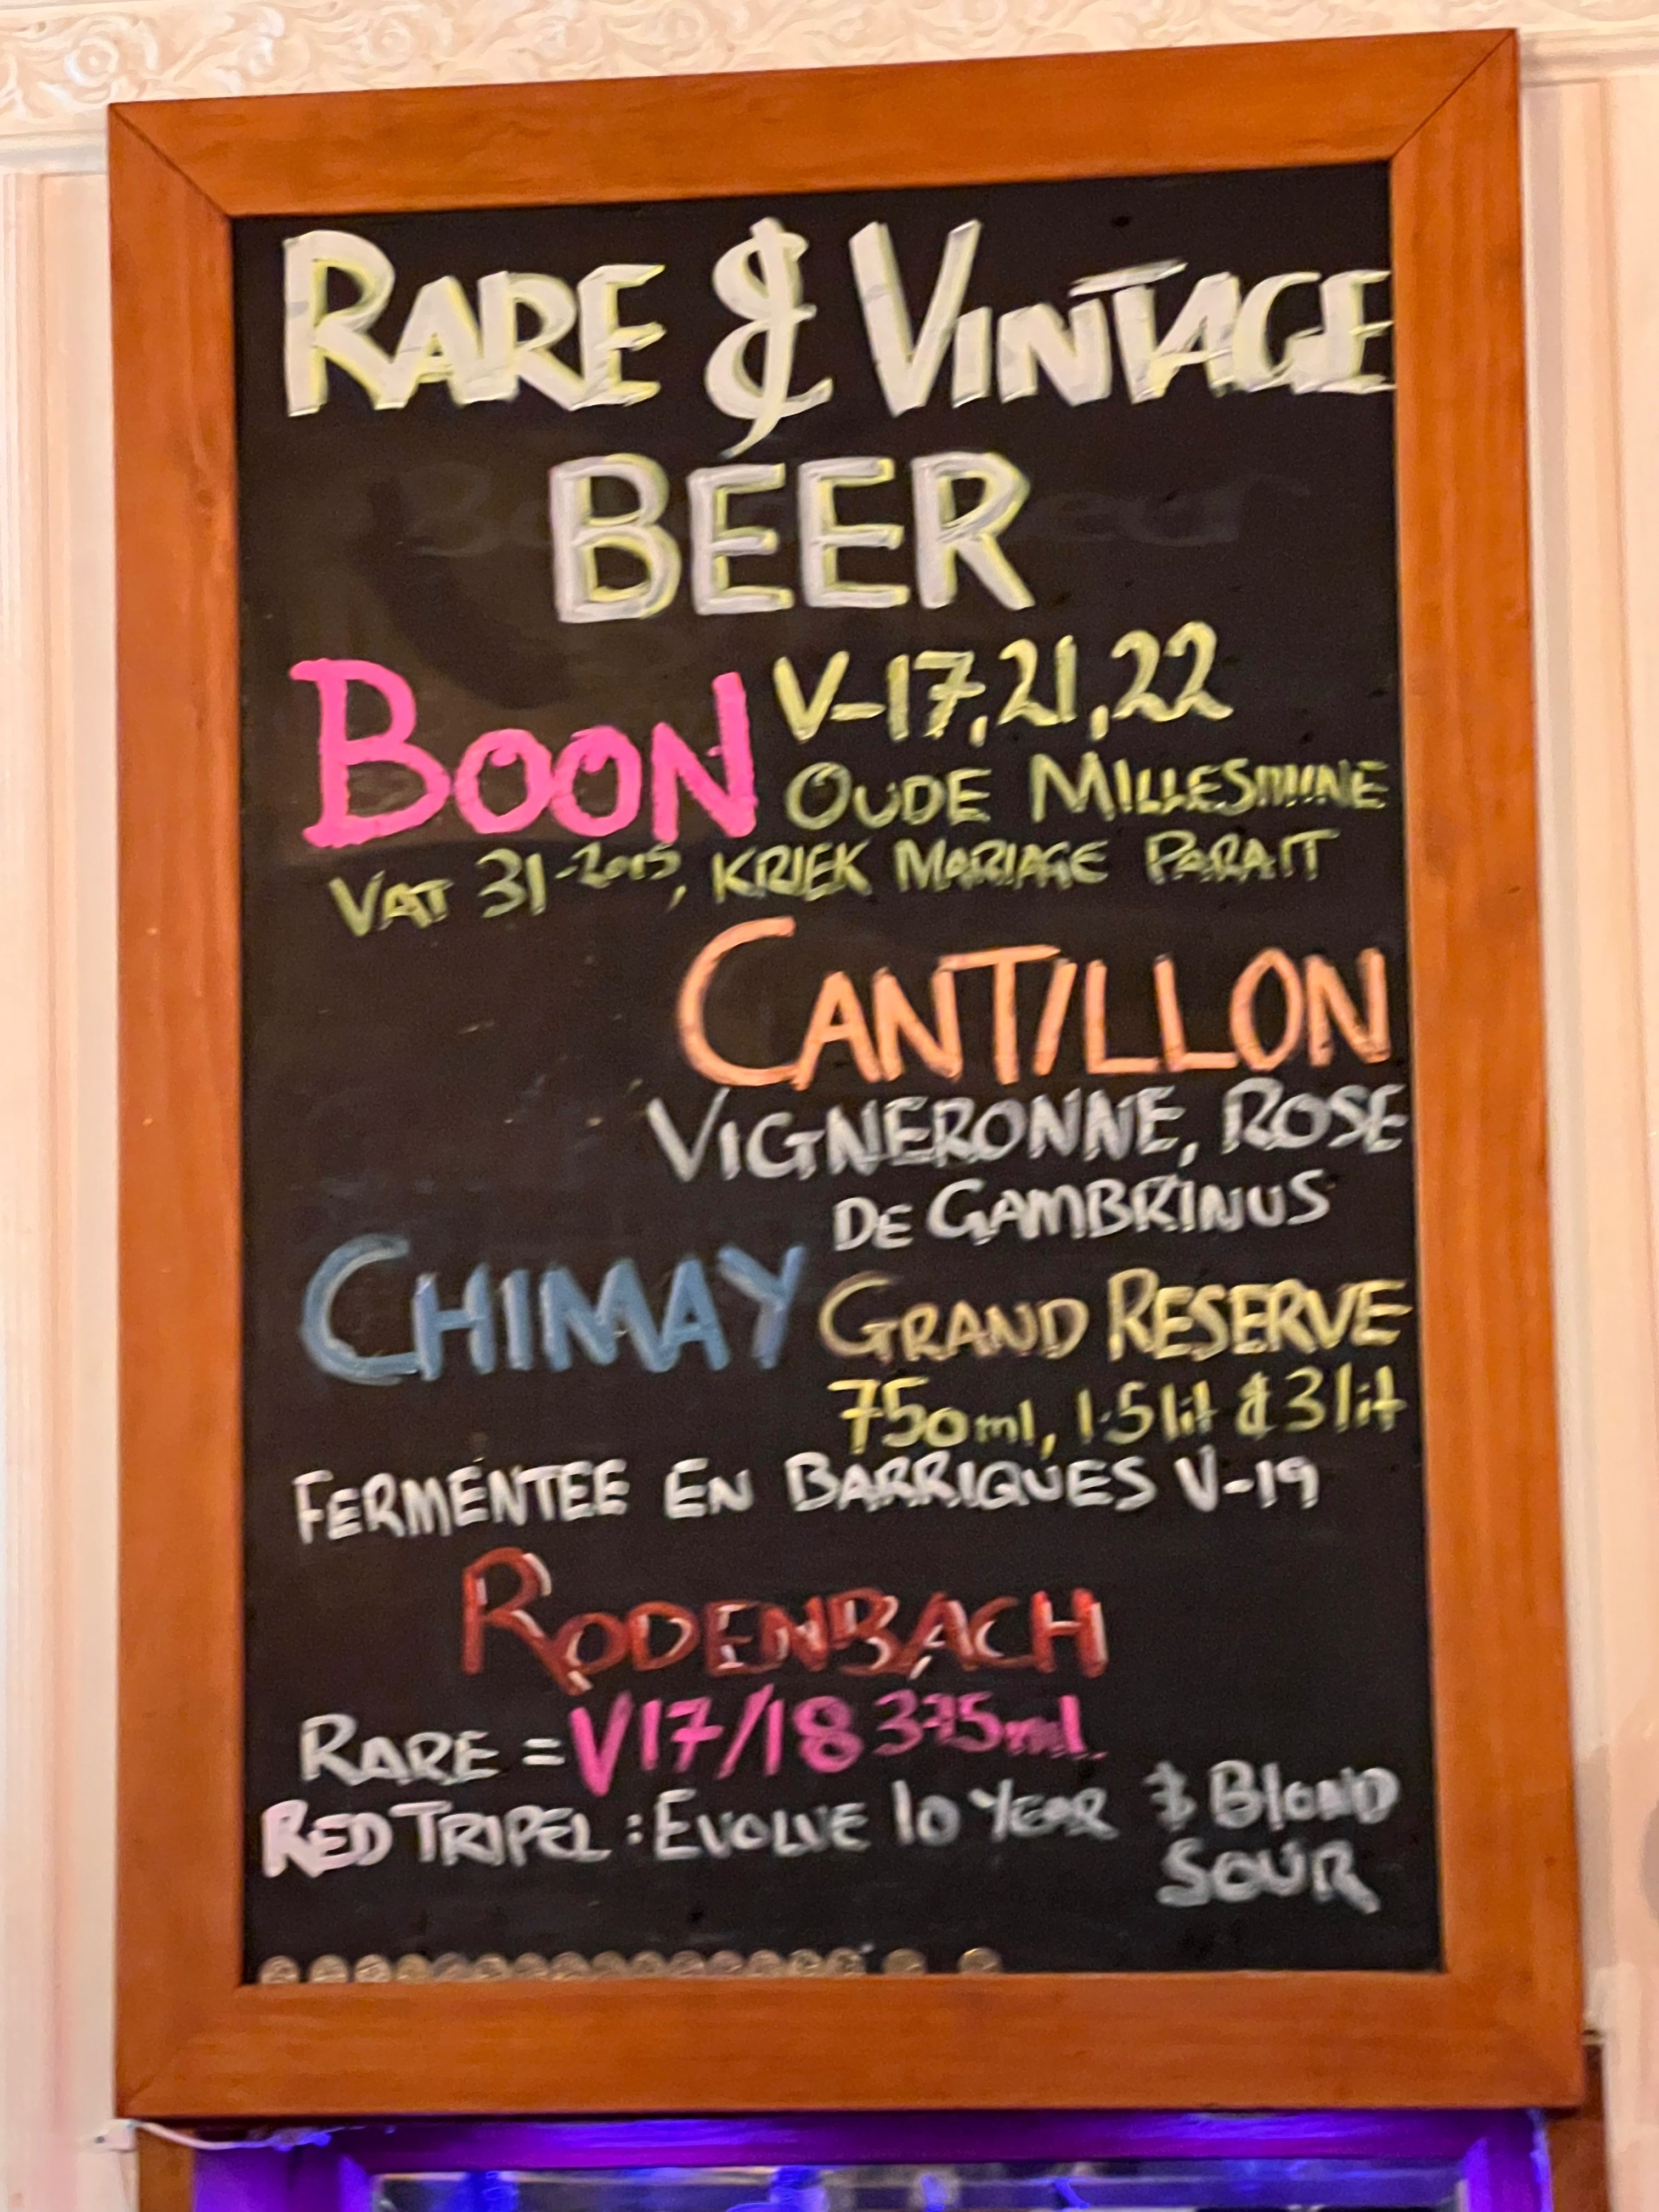 RARE & VINTAGE
BEER
BOON V-17, 21, 22
OUDE MILLESIMINE
VAT 31-2015, KRIEK MARIAGE PARAIT
CANTILLON
VIGNERONNE, ROSE
DE GAMBRINUS
CHIMAY GRAND RESERVE
750ml, 1.5 lit & 3 lit
FERMENTEE EN BARRIQUES V-19
RODENBACH
RARE = V17/18 375ml
RED TRIPEL : EVOLVE 10 YEAR & BLOND
SOUR